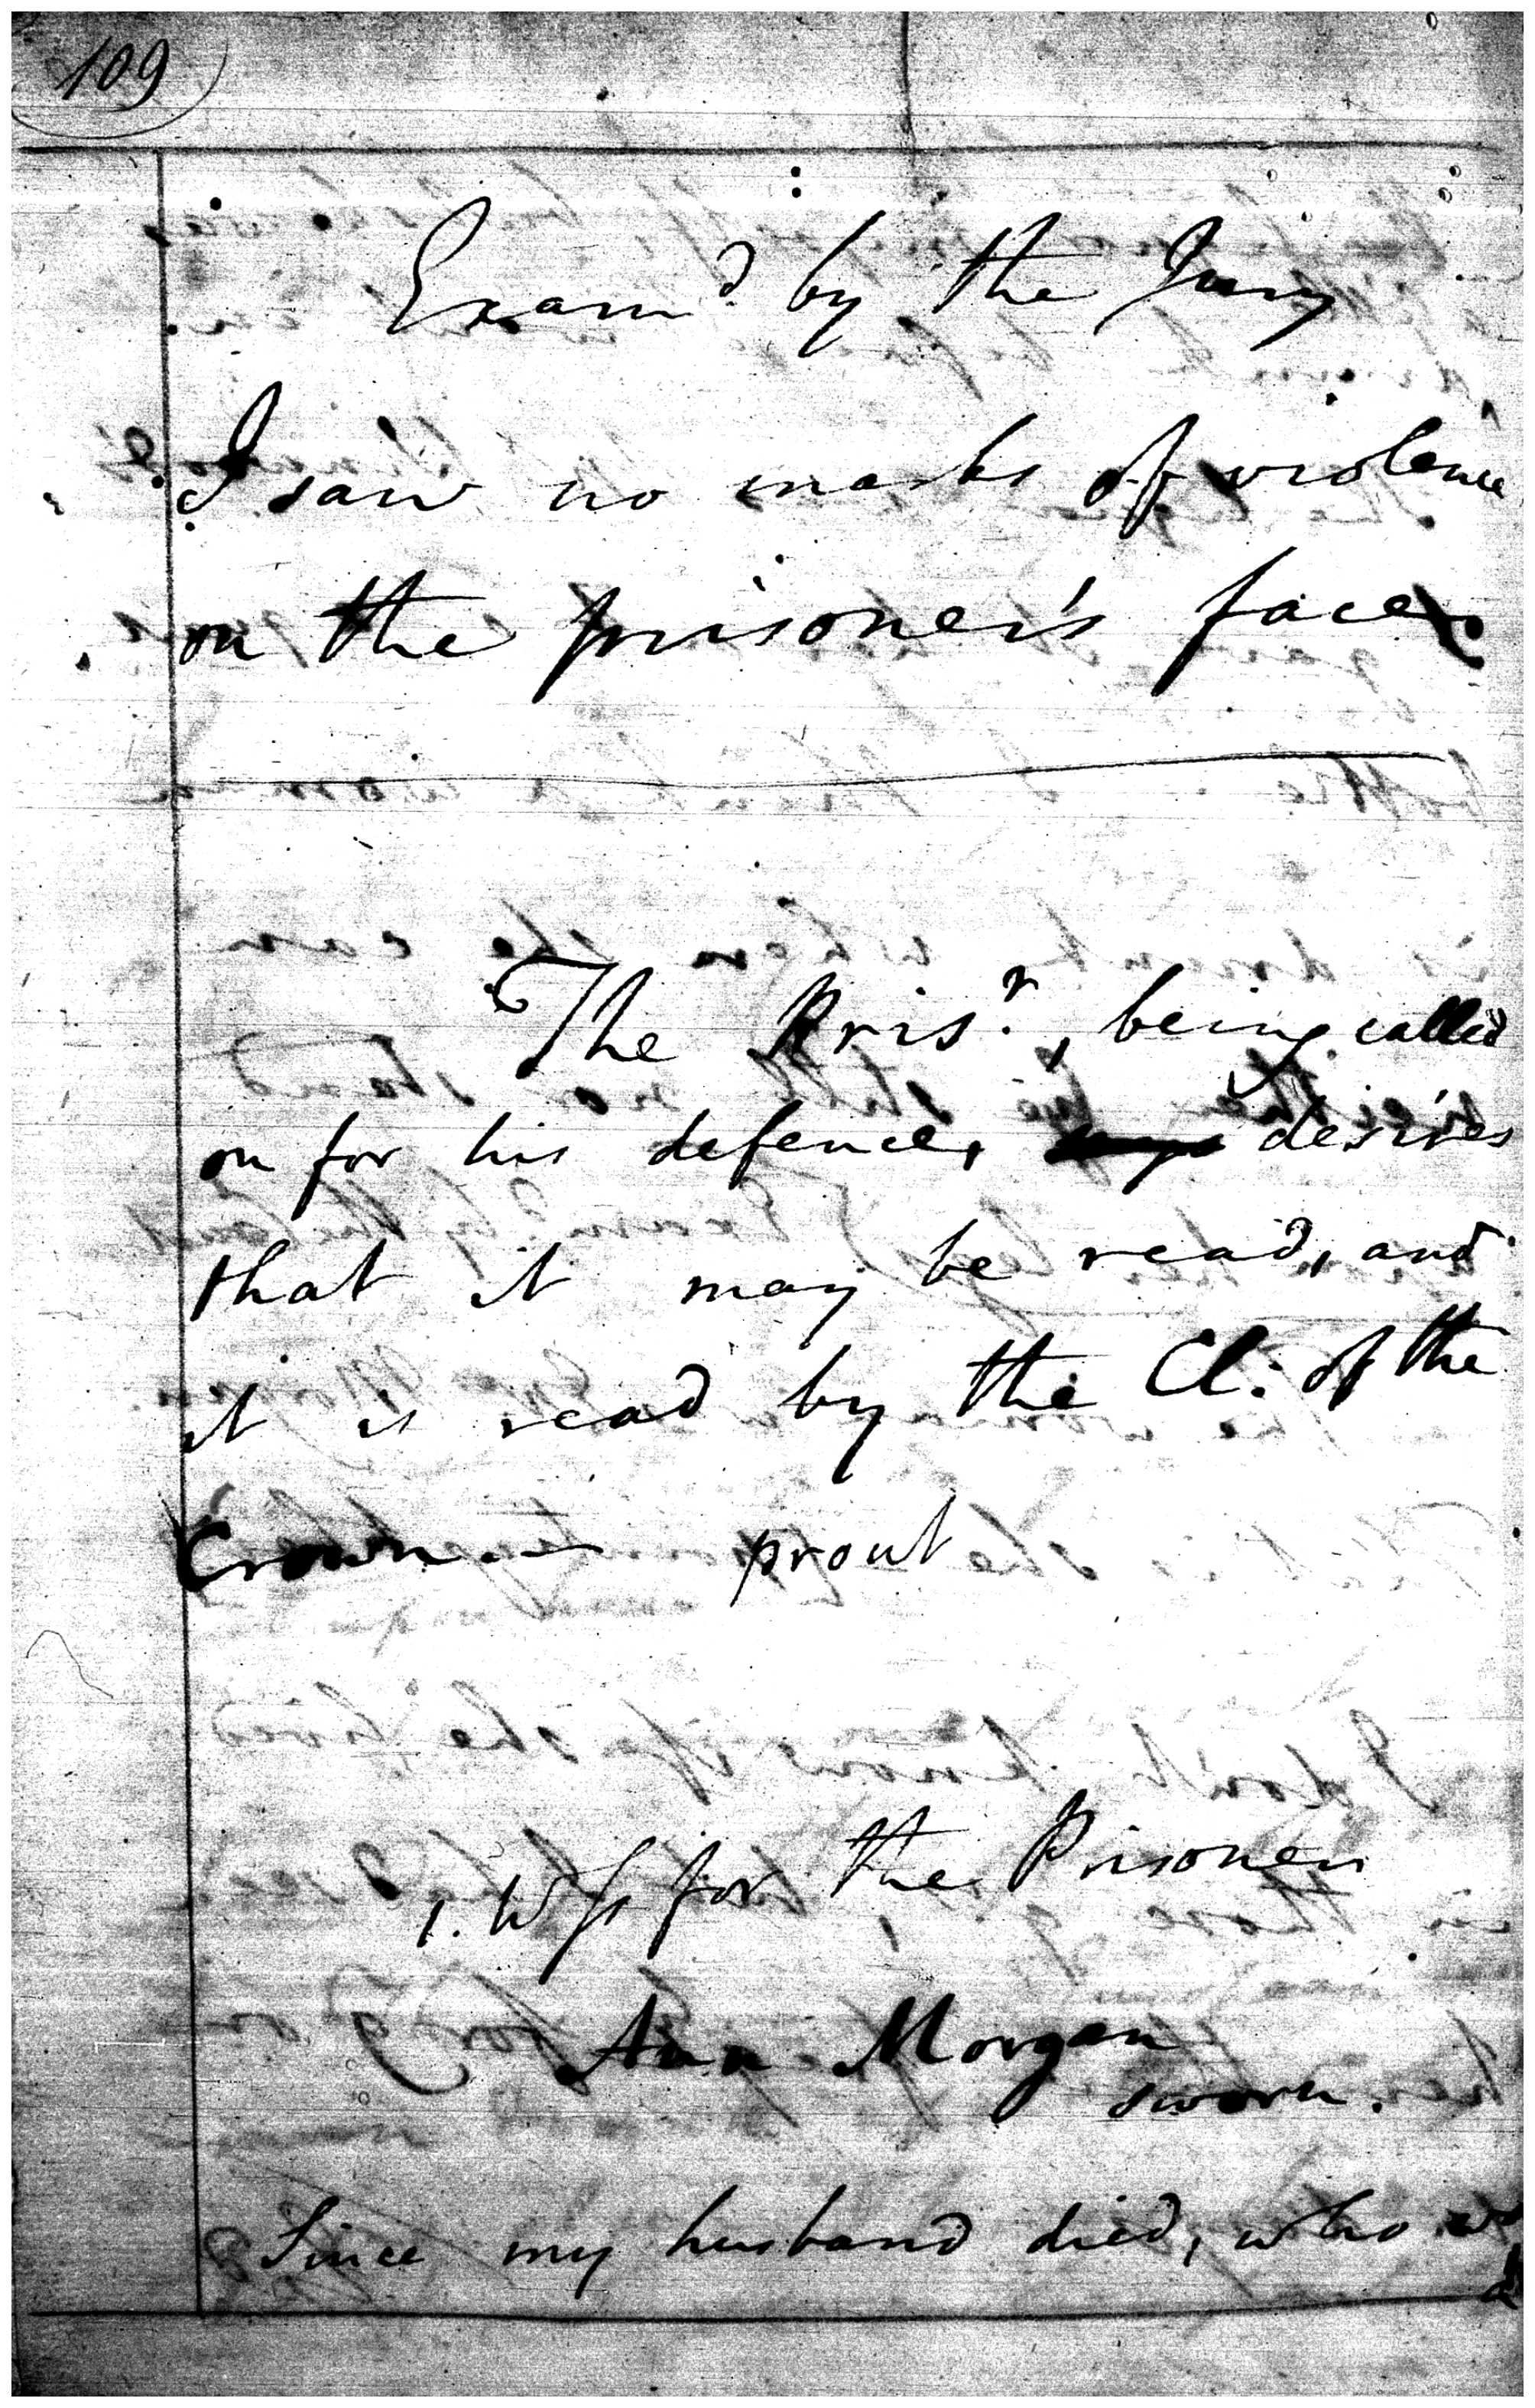 109
Exam.d by the Jury
I saw no marks of violence
on the prisoner's face.
The Pris.r, being called
on for his defence, desires
that it may be read, and
it is read by the Cl: of the
Crown — prout
1. Wss for the Prisoner
Ann Morgan
sworn.
Since my husband died, who